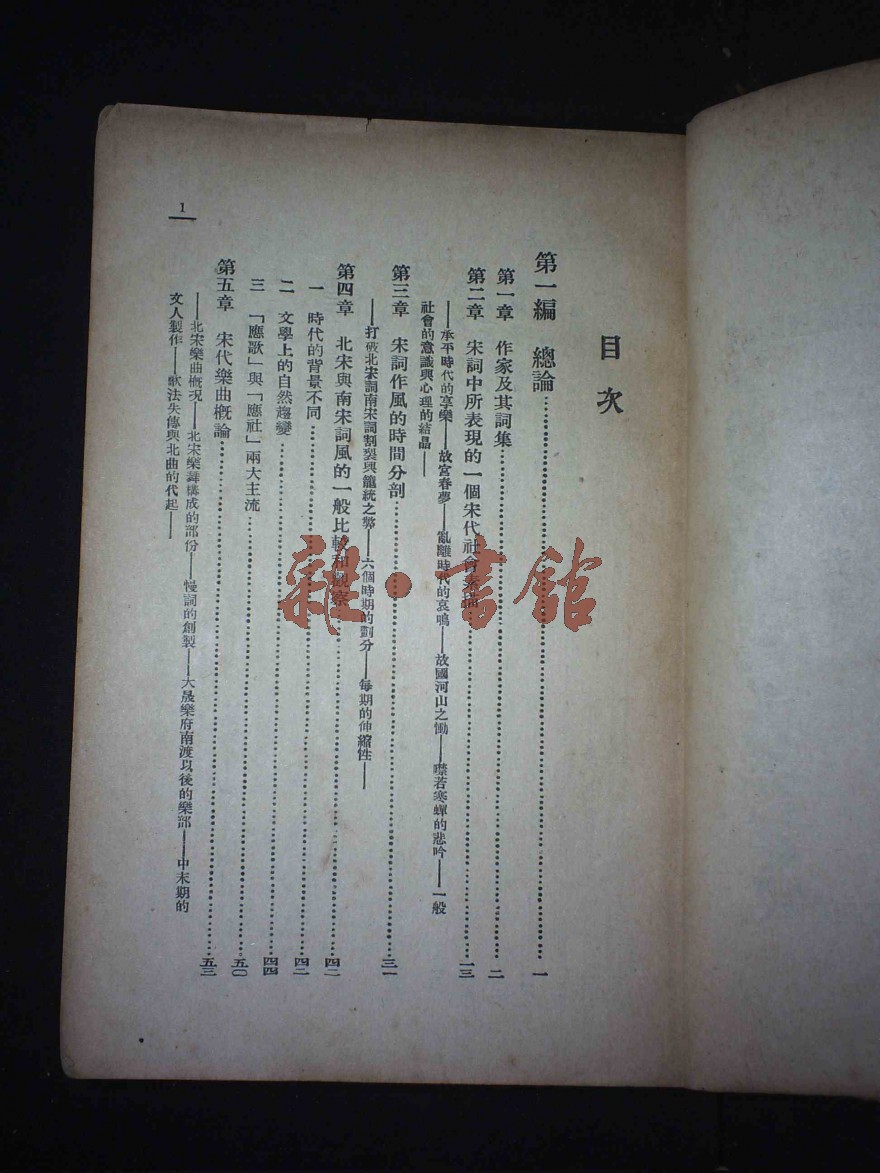 目次
第一編　總論……一
第一章　作家及其詞集……二
第二章　宋詞中所表現的一個宋代社會素描……一三
——承平時代的享樂——故宮春夢——亂離時代的哀鳴——故國河山之慟——噤若寒蟬的悲吟——一般
社會的意識與心理的結晶——
第三章　宋詞作風的時間分剖……三一
——打破北宋詞南宋詞割裂與籠統之弊——六個時期的劃分——每期的伸縮性——
第四章　北宋與南宋詞風的一般比較和觀察……四二
一　時代的背景不同……四二
二　文學上的自然趨變……四四
三　「應歌」與「應社」兩大主流……五〇
第五章　宋代樂曲概論……五三
——北宋樂曲概況——北宋樂舞構成的部份——慢詞的創製——大晟樂府南渡以後的樂部——中末期的
文人製作——歌法失傳與北曲的代起——
1
雜·書館